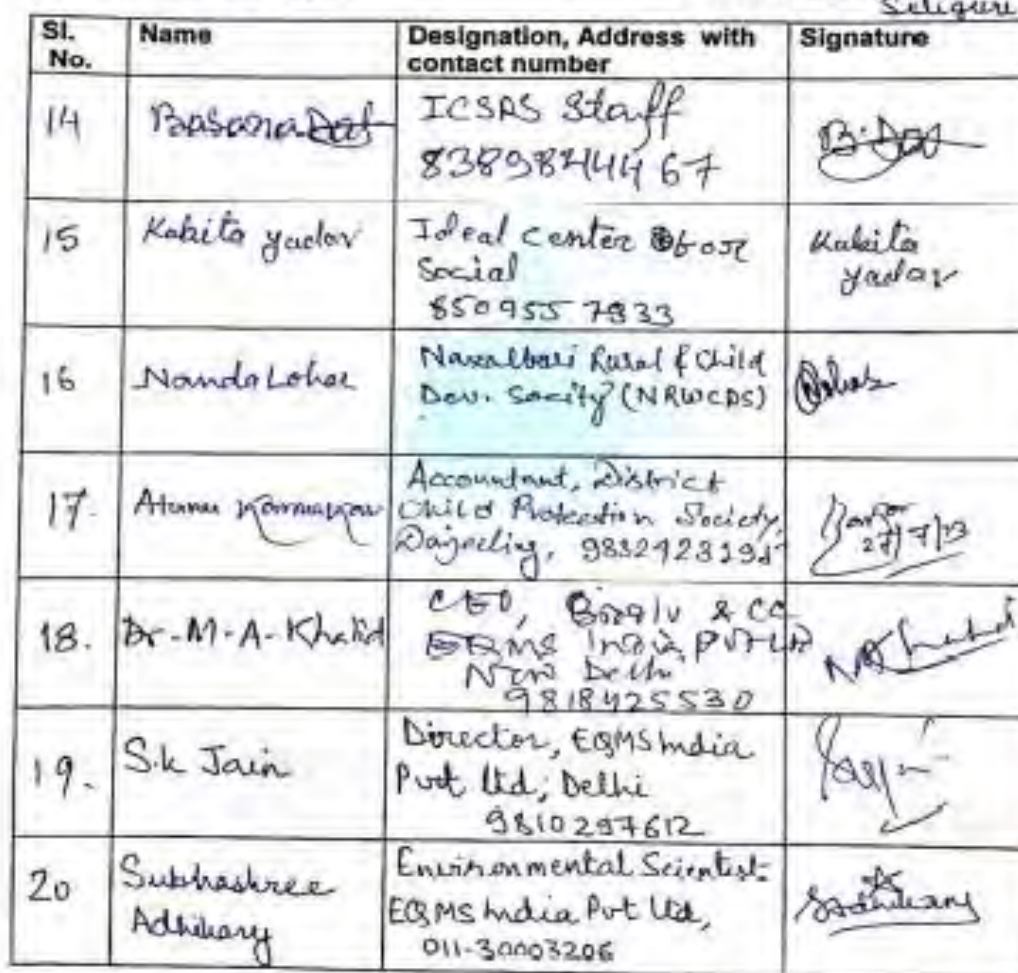 Seliguri
Sl. No. Name Designation, Address with contact number Signature
14 Basana Das ICSRS Staff B. Das
8389844467
15 Kabita yadav Ideal center for Kabita
Social yadav
850955 7933
16 Nanda Lohar Naxalbari Rural & Child
Dev. Socity (NRWCDS)
17. Atanu Karmakar Accountant, District
Child Protection Society, 27/7/13
Darjeeling,
18. Dr. M. A. Khalid CEO, & CC
EQMS India PVT LTD
New Delhi
9818425530
19. S.k Jain Director, EQMS India
Pvt Ltd; Delhi
9810297612
20 Subhashree Environmental Scientist
Adhikary EQMS India Pvt Ltd, SAdhikary
011-30003206